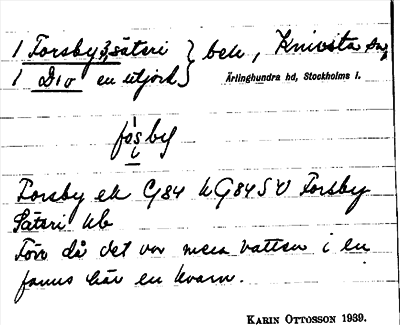 1 Forsby 3, säteri } beb, Knivsta sn,
1 D:o en utjord } Ärlinghundra hd, Stockholms l.
fosby
Forsby ek G84 hG84SV Forsby
Säteri hb
Förr då det var mera vatten i en
fanns här en kvarn.
KARIN OTTOSSON 1939.